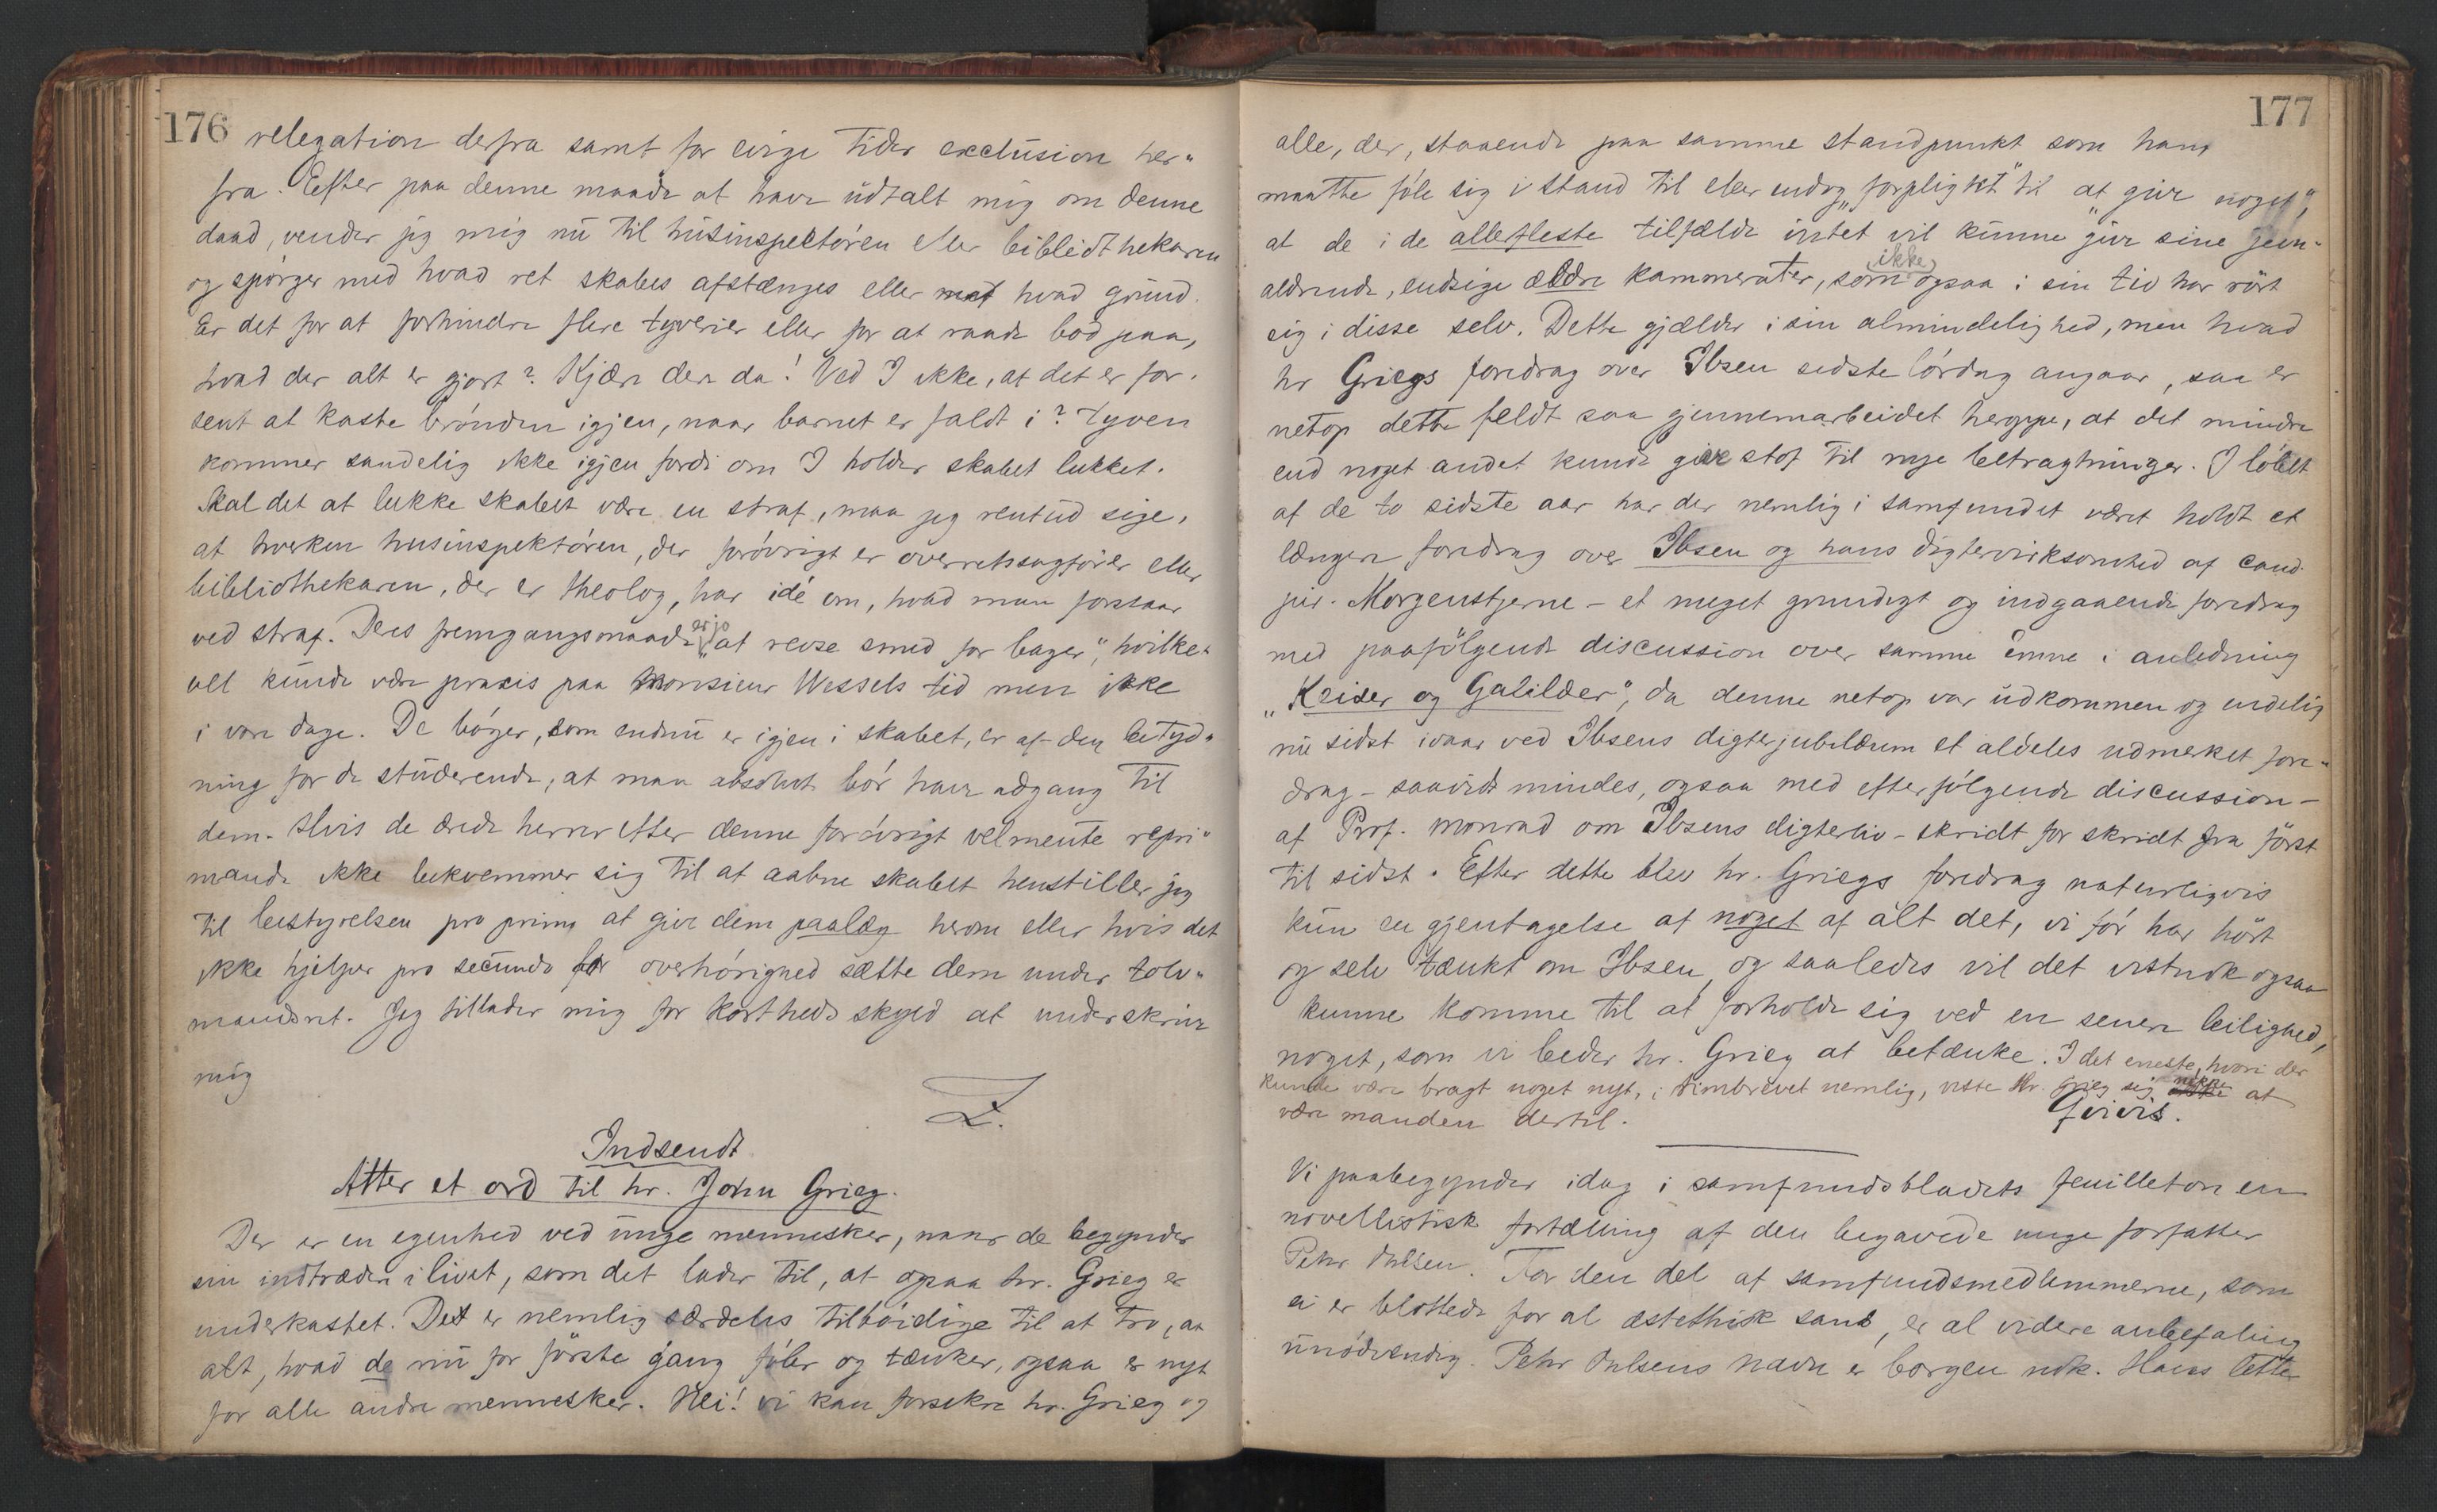 176
relegation derfra samt for evige tider exclusion her-
fra. Eefter paa denne maade at have udtalt mig om denne
daad, vender jeg mig nu til husinspektøren eller bibliothekaren
og spørger med hvad ret skabes afstænges eller med hvad grund.
Er det for at forhindre flere tyverier eller for at raade bod paa,
hvad der alt er gjort? Kjære dere da! Ved I ikke, at det er for-
sent at kaste brønden igjen, naar barnet er faldt i? tyven
kommer sandelig ikke igjen fordi om I holder skabet lukket.
Skal det at lukke skabet være en straf, maa jeg rentud sige,
at hverken husinspektøren, der forøvrigt er overretssagfører eller
bibliothekaren, der er theolog, har idé om, hvad man forstaar
ved straf. Deres fremgangsmaade er jo „at revse smed for bager“, hvilket
alt kunde være praxis paa Monsieur Wessels tid men ikke
i vore dage. De bøger, som endnu er igjen i skabet, er af den betyd-
ning for de studerende, at man absolut bør have adgang til
dem. Hvis de ærede herrer efter denne forøvrigt velmente repri-
mande ikke bekvemmer sig til at aabne skabet henstiller jeg
til bestyrelsen pro primo at give dem paalæg herom eller hvis det
ikke hjelper pro secundo for overhørighed sætte dem under tolv-
mandsret. Jeg tillader mig for kortheds skyld at underskrive
mig
Z.
Indsendt
Atter et ord til hr. John Grieg.
Der er en egenhed ved unge mennesker, naar de begynder
sin indtræden i livet, som det lader til, at ogsaa hr. Grieg er
underkastet. Det er nemlig særdeles tilbøidige til at tro, at
alt, hvad de nu for første gang føler og tænker, ogsaa er nyt
for alle andre mennesker. Nei! vi kan forsikre hr. Grieg og
177
alle, der, staaende paa samme standpunkt som han
maatte føle sig i stand til eller endog „forpligtet“ til „at give noget“,
at de i de allefleste tilfælde intet vil kunne give sine jevn-
aldrende, endsige ældre kammerater, som ikke ogsaa i sin tid har rört
sig i disse selv. Dette gjælder i sin almindelighed, men hvad
hr Griegs foredrag over Ibsen sidste lørdag angaar, saa er
netop dette feldt saa gjennemarbeidet heroppe, at det mindre
end noget andet kunde give stof til nye betragtninger. I løbet
af de to sidste aar har der nemlig i samfundet været holdt et
længere foredrag over Ibsen og hans digtervirksomhed af cand.
jur. Morgenstjerne – et meget grundigt og indgaaende foredrag
med paafølgende discussion over samme emne i anledning
„Keiser og Galilæer“, da denne netop var udkommen og endelig
nu sidst ivaar ved Ibsens digterjubilæum et aldeles udmerket fore-
drag – saavidt mindes, ogsaa med efterfølgende discussion –
af Prof. Monrad om Ibsens digterliv – skridt for skridt fra først
til sidst. Efter dette blev hr. Griegs foredrag naturligvis
kun en gjentagelse af noget af alt det, vi før har hört
og selv tænkt om Ibsen, og saaledes vil det vistnok ogsaa
kunne komme til at forholde sig ved en senere leilighed,
noget, som vi beder hr. Grieg at betænke. I det eneste, hvori der
kunde være bragt noget nyt, i rimbrevet nemlig, viste Hr. Grieg sig at
være manden dertil.
Qvivis.
Vi paabegynder idag i samfundsbladets feuilleton en
novellistisk fortælling af den begavede unge forfatter
Peter . For den del af samfundsmedlemmerne, som
ei er blottede for al æstethisk sans, er al videre anbefaling
unødvendig. navn er borgen nok. Hans lette